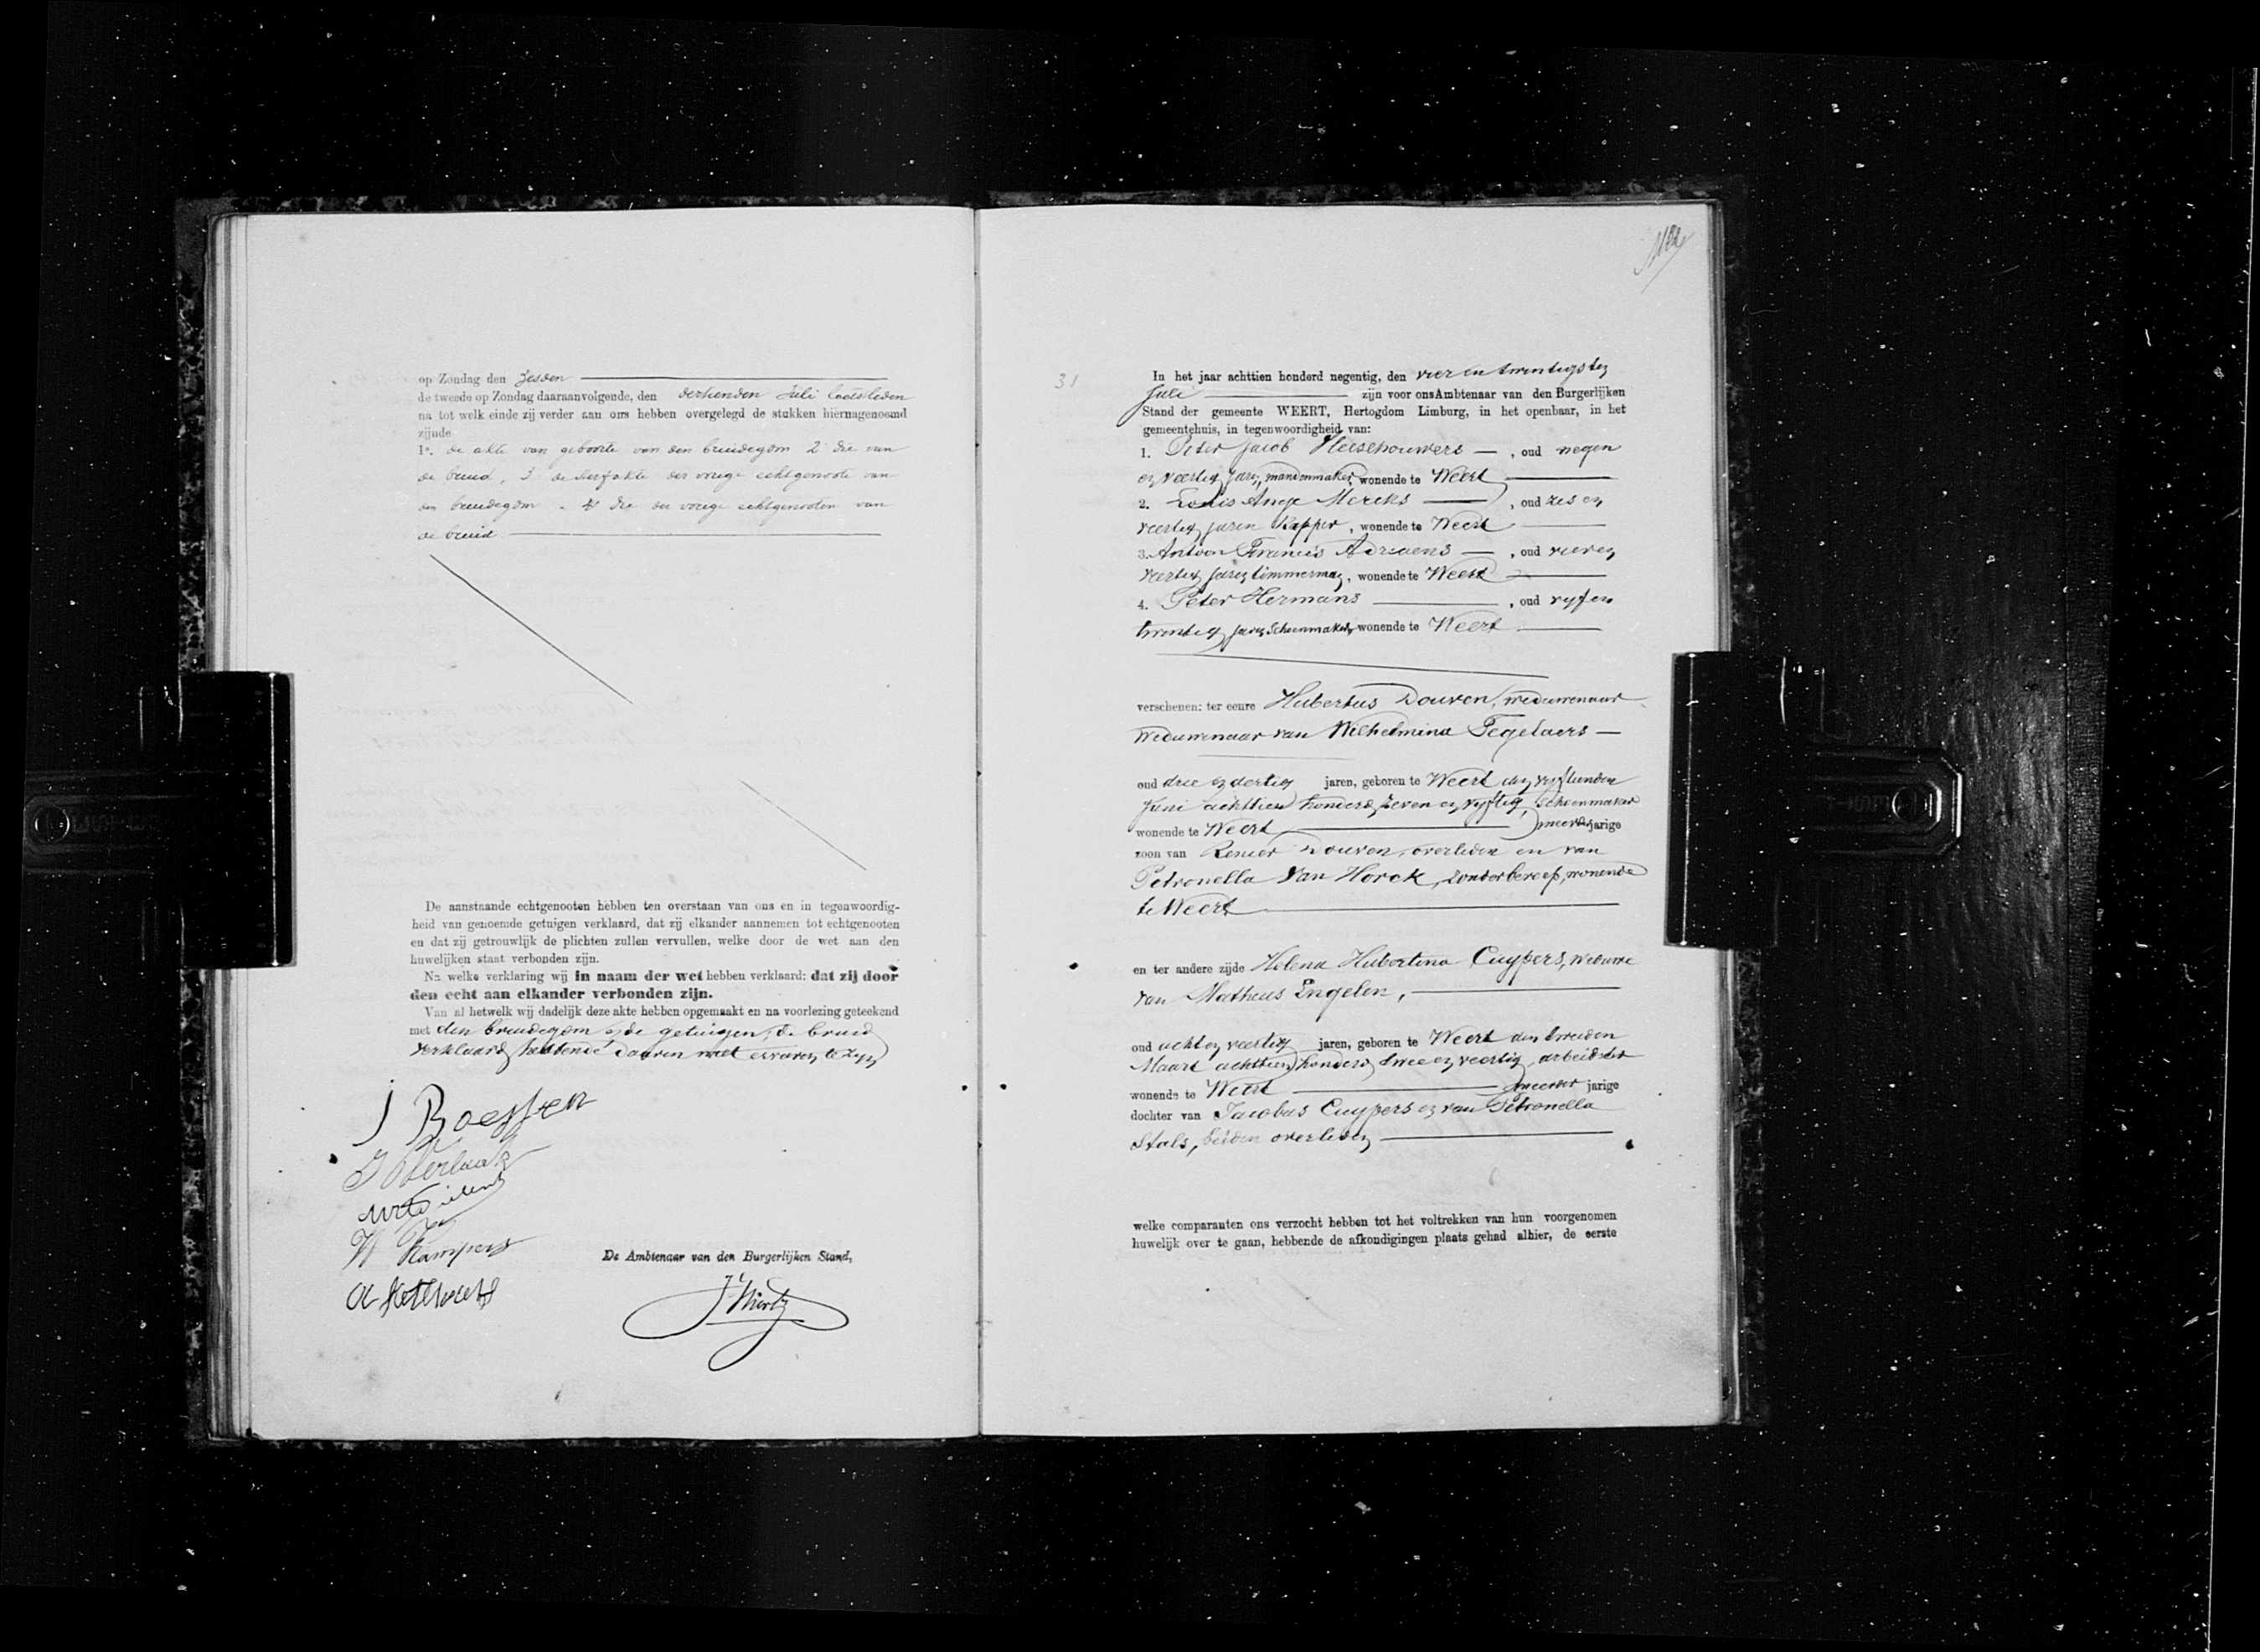 op Zondag den zesden
de tweede op Zondag daaraanvolgende, den dertienden Juli laatstleden
na tot welk einde zij verder aan ons hebben overgelegd de stukken hiernagenoemd
zijnde
1°. de akte van geboorte van den bruidegom 2 die van
de bruid, 3 de sterfakte der vorige echtgenoote van
den bruidegom 4 die der vorige echtgenooten van
de bruid
De aanstaande echtgenooten hebben ten overstaan van ons en in tegenwoordig-
heid van genoemde getuigen verklaard, dat zij elkander aannemen tot echtgenooten
en dat zij getrouwlijk de plichten zullen vervullen, welke door de wet aan den
huwelijken staat verbonden zijn.
Na welke verklaring wij in naam der wet hebben verklaard: dat zij door
den echt aan elkander verbonden zijn.
Van al hetwelk wij dadelijk deze akte hebben opgemaakt en na voorlezing geteekend
met den bruidegom en de getuigen, de bruid
verklaard hebbende daarin niet ervaren te zijn
J Boessen
W Kampers
De Ambtenaar van den Burgerlijken Stand,
31
In het jaar achttien honderd negentig, den vier en twintigsten
Juli zijn voor ons Ambtenaar van den Burgerlijken
Stand der gemeente WEERT, Hertogdom Limburg, in het openbaar, in het
gemeentehuis, in tegenwoordigheid van:
1. Peter Jacob Vleeschouwers , oud negen
en veertig jaren, mandenmaker, wonende te Weert
2. Louis Ange Mercks , oud zes en
veertig jaren Kapper, wonende te Weert
3. Antoon Francis Adriaens , oud vier en
veertig jaren timmerman, wonende te Weert
4. Peter Hermans , oud vyf en
twintig jaren Schoenmaker, wonende te Weert
verschenen: ter eenre Hubertus Douven, weduwenaar
weduwenaar van Wilhelmina Tegelaers
oud drie en dertig jaren, geboren te Weert den vyftienden
Juni achttien honderd zeven en vyftig, Schoenmaker
wonende te Weert meerderjarige
zoon van Renier Douven, overleden en van
Petronella Van Horck, zonder beroep, wonende
te Weert
en ter andere zijde Helena Hubertina Cuypers, weduwe
van Matheus Engelen,
oud acht en veertig jaren, geboren te Weert den tweeden
Maart achttien honderd twee en veertig arbeidster
wonende te Weert meerder jarige
dochter van Jacobus Cuypers en van Petronella
Stals, beiden overleden
welke comparanten ons verzocht hebben tot het voltrekken van hun voorgenomen
huwelijk over te gaan, hebbende de afkondigingen plaats gehad alhier, de eerste